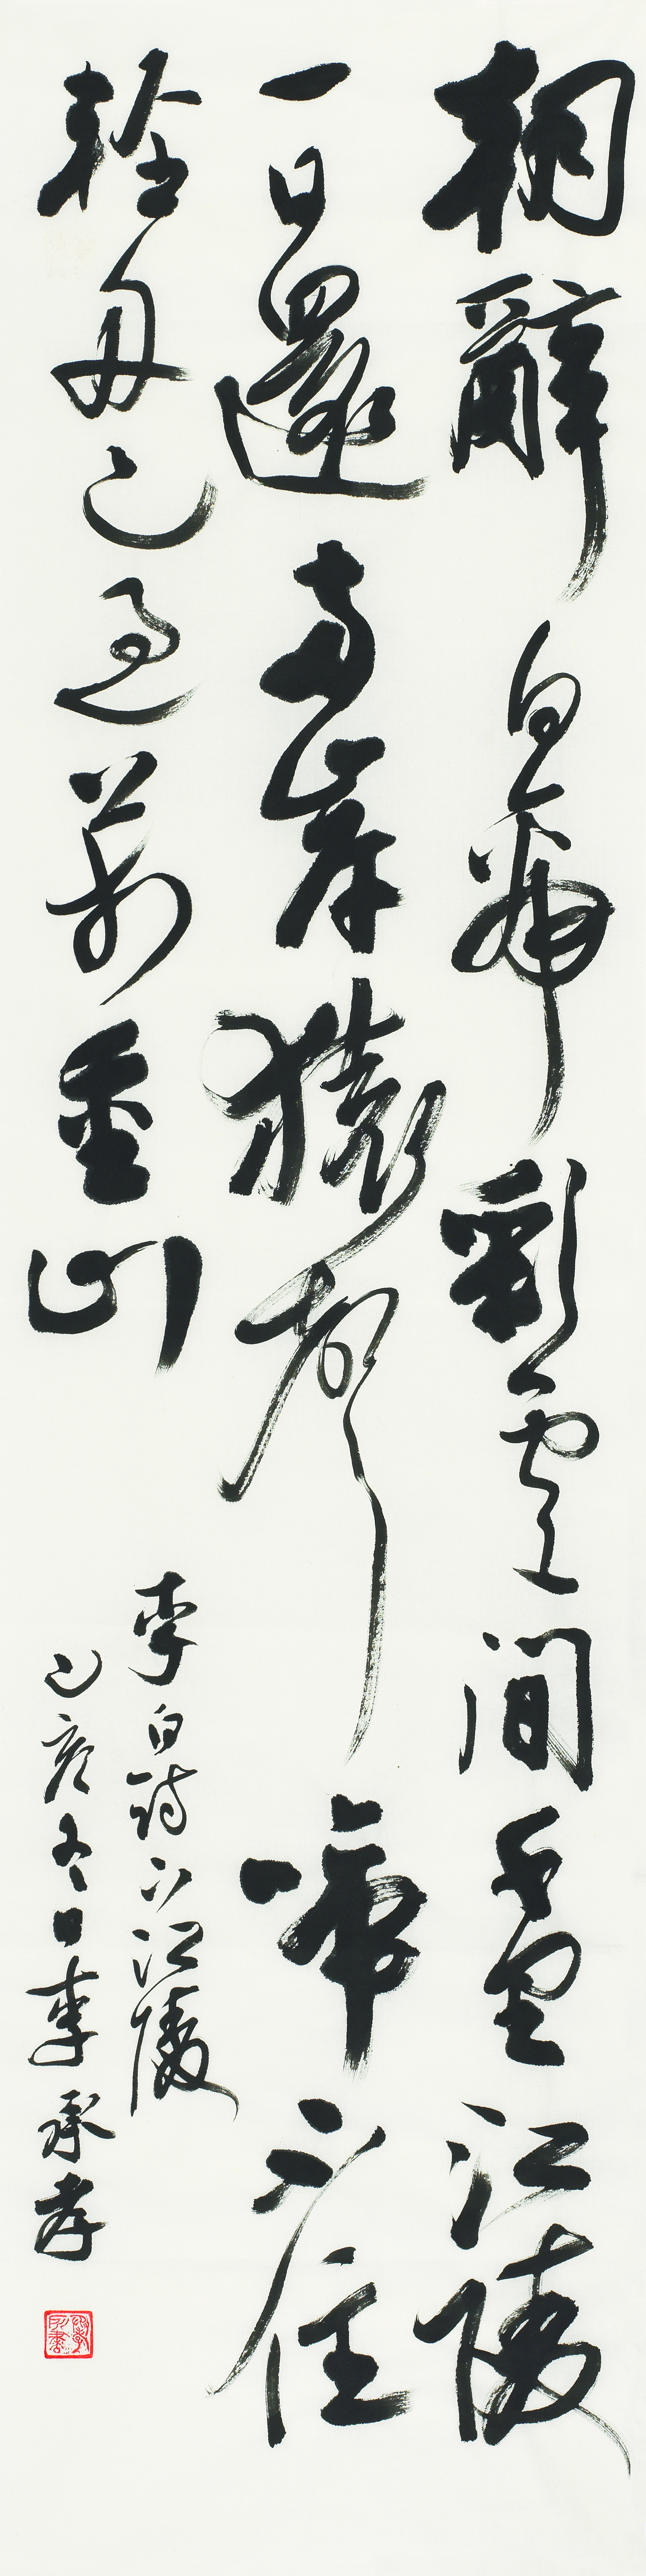 朝辭白帝彩雲間千里江陵
一日還兩岸猿聲啼不住
輕舟已過萬重山
李白詩下江陵
己亥冬日李承孝